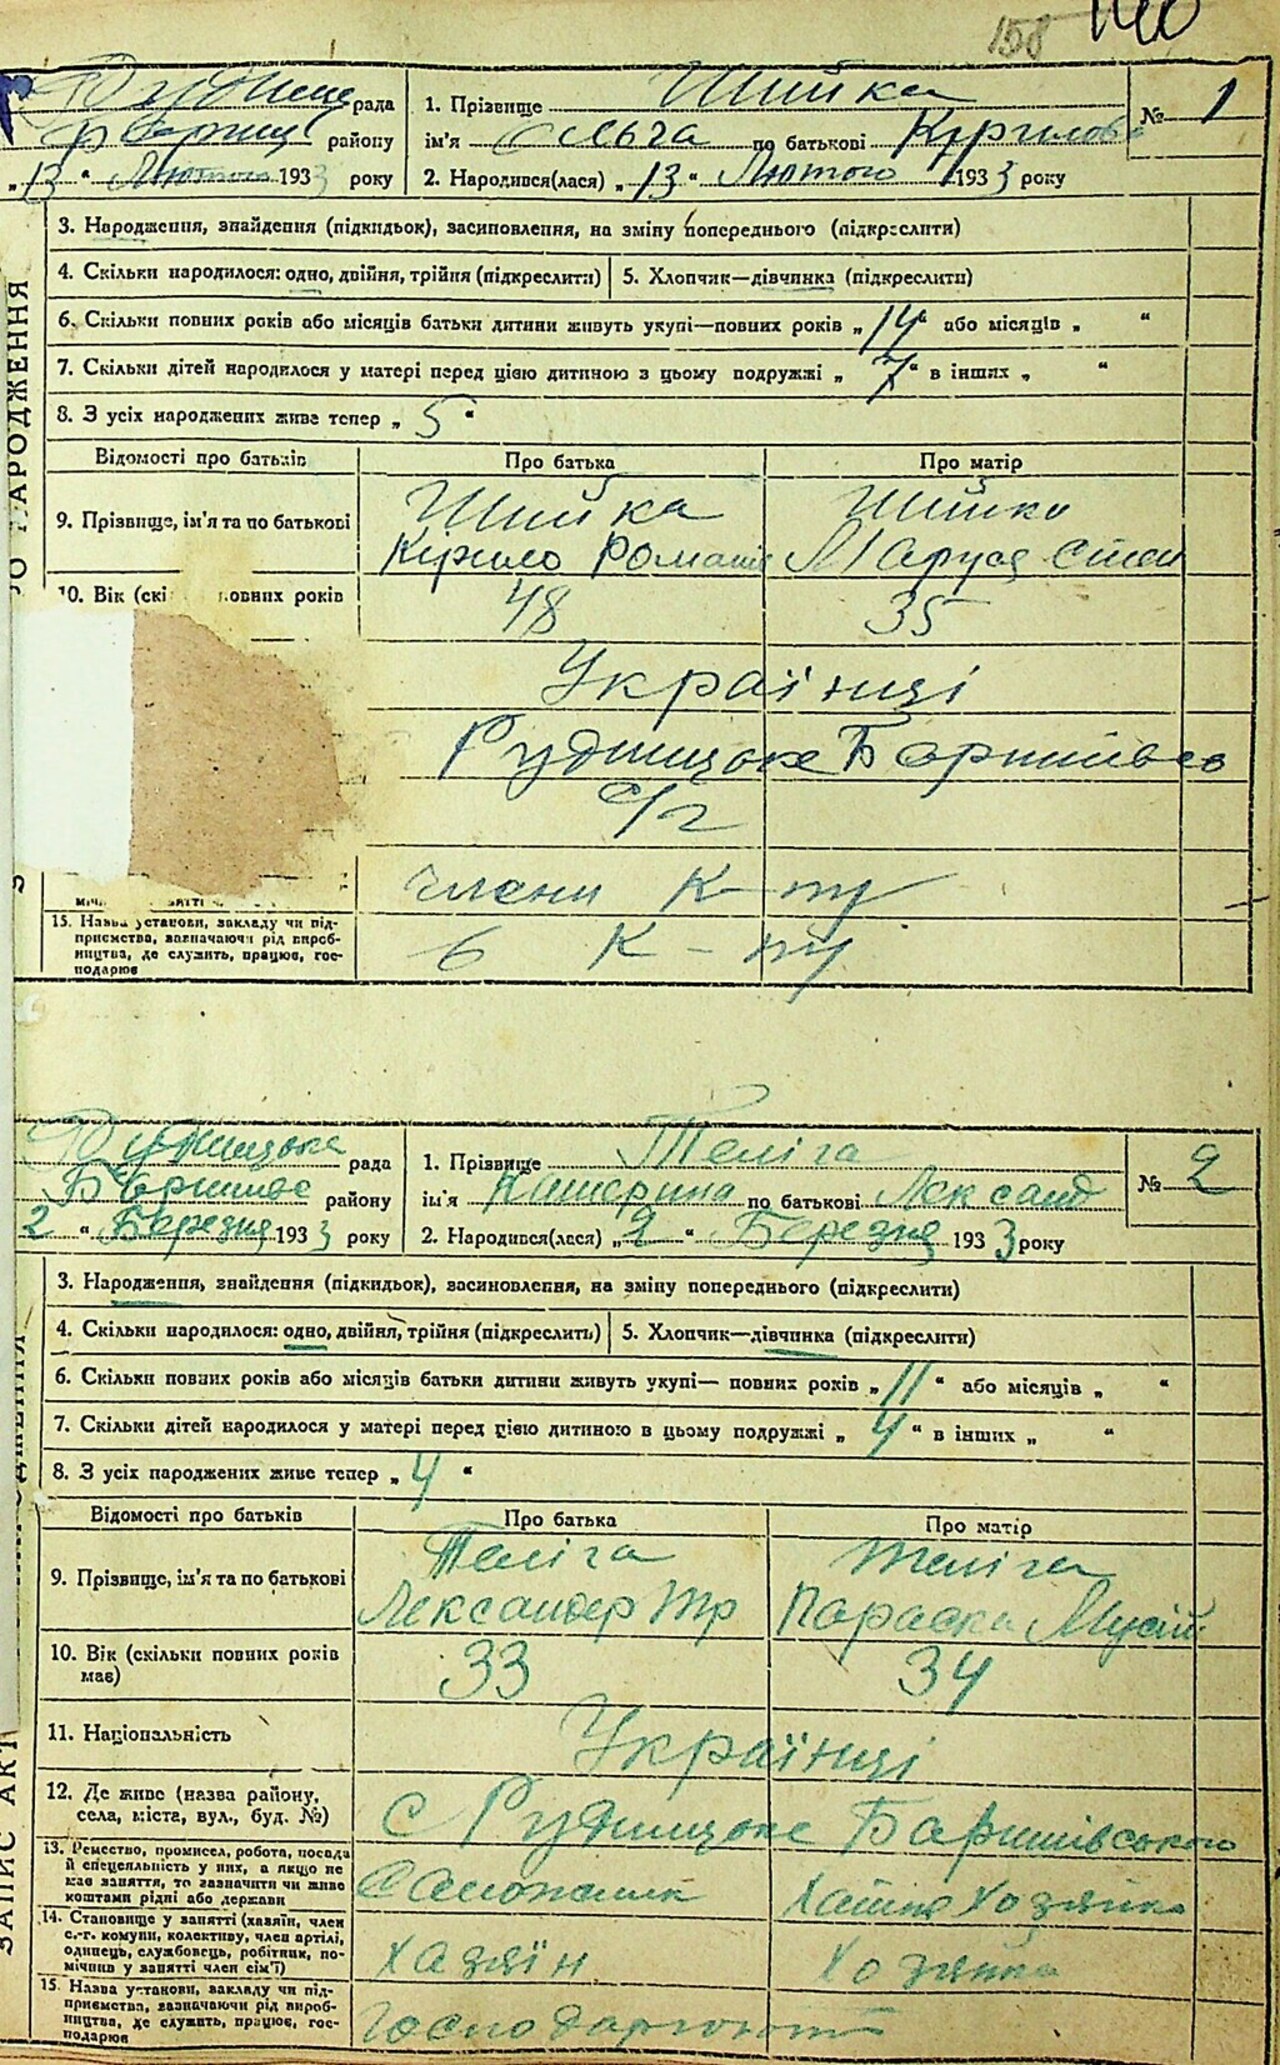 158
рада
району
„13“ Лютого 1933 року
1. Прізвище Шийка
ім'я Ольга по батькові Кирилов
2. Народився(лася) „13“ Лютого 1933 року
№ 1
3. Народження, знайдення (підкидьок), засиновлення, на зміну попереднього (підкреслити)
4. Скільки народилося: одно, двійня, трійня (підкреслити)
5. Хлопчик—дівчинка (підкреслити)
6. Скільки повних років або місяців батьки дитини живуть укупі—повних років „14“ або місяців „ “
7. Скільки дітей народилося у матері перед цією дитиною з цьому подружжі „7“ в інших „ “
8. З усіх народжених живе тепер „5“
Відомості про батьків
Про батька
Про матір
9. Прізвище, ім'я та по батькові
Шийка
Кірило Романів
Шийка
Маруся Степ
10. Вік (скі овних років
48
35
Українці
Рудницьке Баришівсь
с/г
члени к-пу
15. Назва установи, закладу чи під-
приємства, зазначаючи рід вироб-
ництва, де служить, працює, гос-
подарює
в к-пу
НАРОДЖЕННЯ
Рудницька рада
Баришівс району
2 “ Березня 1933 року
1. Прізвище Теліга
ім'я Катерина по батькові Лександ
2. Народився(лася) „2“ Березня 1933 року
№ 2
3. Народження, знайдення (підкидьок), засиновлення, на зміну попереднього (підкреслити)
4. Скільки народилося: одно, двійня, трійня (підкреслить)
5. Хлопчик—дівчинка (підкреслити)
6. Скільки повних років або місяців батьки дитини живуть укупі— повних років „11“ або місяців „ “
7. Скільки дітей народилося у матері перед цією дитиною в цьому подружжі „4“ в інших „ “
8. З усіх народжених живе тепер „4“
Відомості про батьків
Про батька
Про матір
9. Прізвище, ім'я та по батькові
Теліга
Лександер Тр
Теліга
Параска Мусій
10. Вік (скільки повних років
має)
33
34
11. Національність
Українці
12. Де живе (назва району,
села, міста, вул., буд. №)
с Рудницьке Баришівського
13. Ремество, промисел, робота, посада
й спеціяльність у них, а якщо не
має заняття, то зазначити чи живе
коштами рідні або держави
Хатня Хозяйка
14. Становище у занятті (хазяїн, член
с.-г. комуни, колективу, член артілі,
одинець, службовець, робітник, по-
мічник у занятті член сім'ї)
Хазяїн
Хозяйка
15. Назва установи, закладу чи під-
приємства, зазначаючи рід вироб-
ництва, де служить, працює, гос-
подарює
господарюют
ЗАПИС АКТ